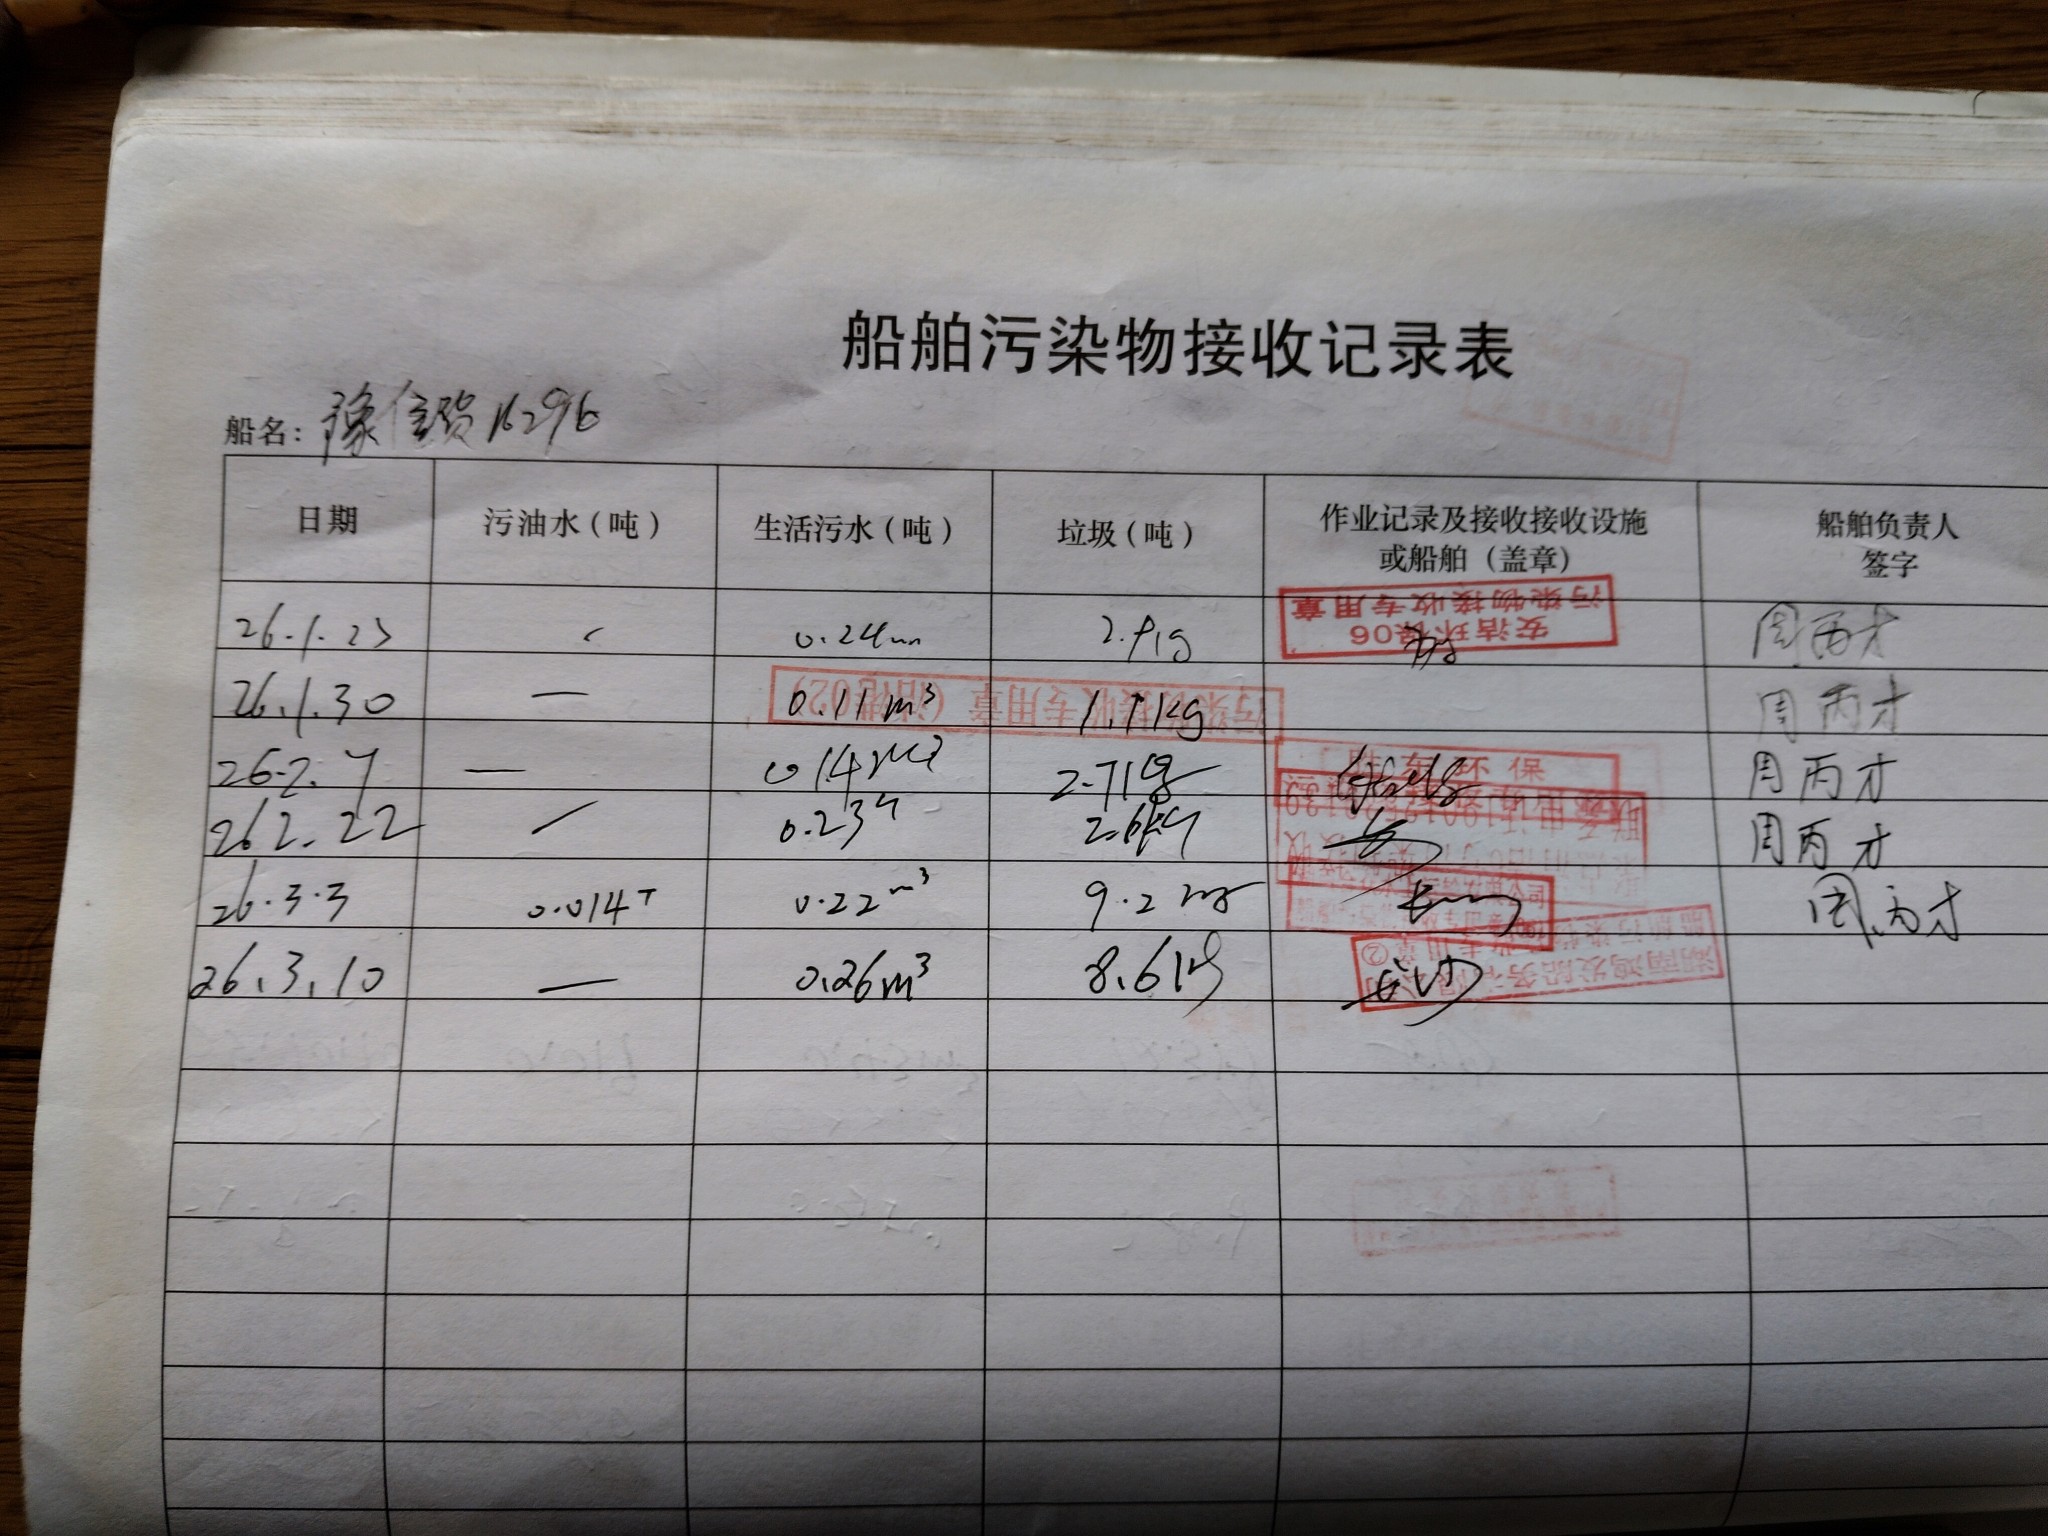 船舶污染物接收记录表
船名：豫信货16296
日期 污油水（吨） 生活污水（吨） 垃圾（吨） 作业记录及接收接收设施或船舶（盖章） 船舶负责人签字
26.1.23 0.24 安洁环保06 污染物接收专用章 周丙才
26.1.30 — 0.11m³ 1.1kg 污染物接收专用章 周丙才
26.2.7 — 0.14m³ 2.7kg 环保 周丙才
26.2.22 / 0.23 2.6kg 周丙才
26.3.3 0.014T 0.22m³ 9.2 周丙才
26.3.10 — 0.26m³ 8.6kg 湖南鸿发船务有限公司 船舶污染物接收专用章②